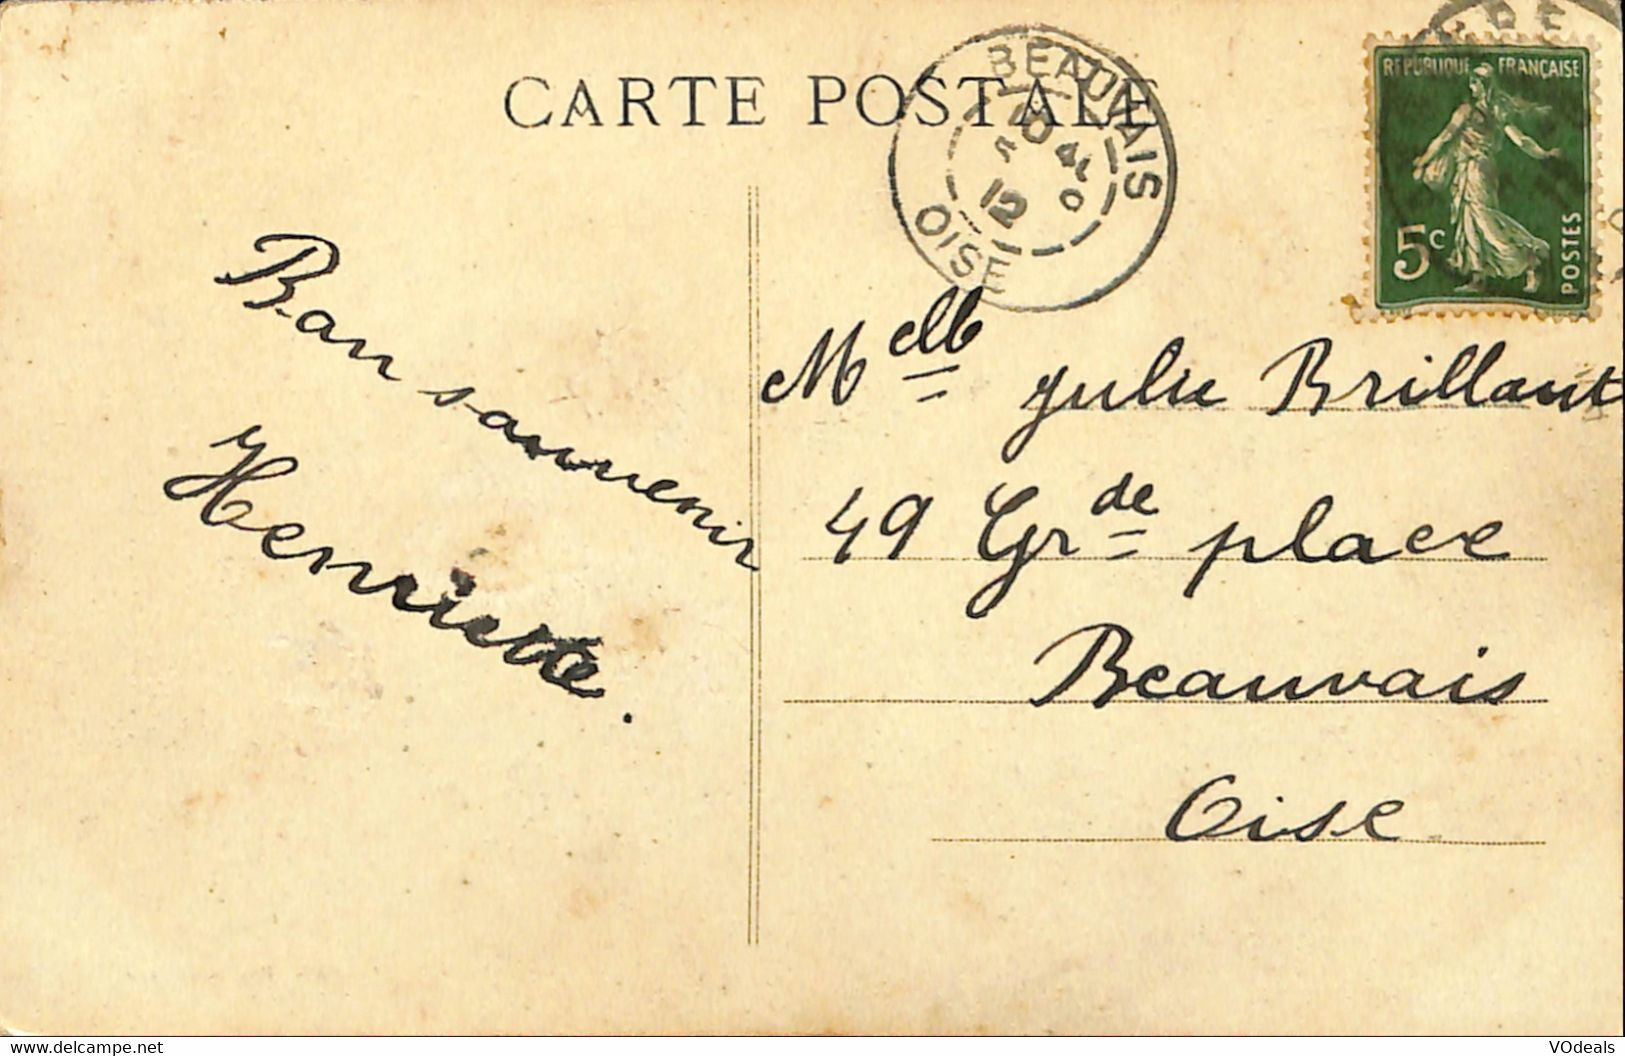 CARTE POSTALE
BEAUVAIS
OISE
RÉPUBLIQUE FRANÇAISE
5c
POSTES
Bon souvenir
Henriette.
Melle Julie Brillant
49 Grde place
Beauvais
Oise
www.delcampe.net
VOdeals